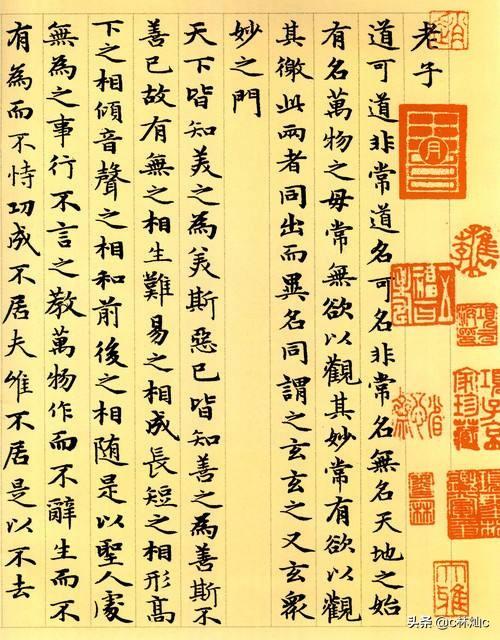 老子
道可道非常道名可名非常名無名天地之始
有名萬物之母常無欲以觀其妙常有欲以觀
其徼此兩者同出而異名同謂之玄玄之又玄衆
妙之門
天下皆知美之為美斯惡已皆知善之為善斯不
善已故有無之相生難易之相成長短之相形高
下之相傾音聲之相和前後之相随是以聖人處
無為之事行不言之教萬物作而不辭生而不
有為而不恃功成不居夫唯不居是以不去
項子京家珍藏
头条 @c林灿c